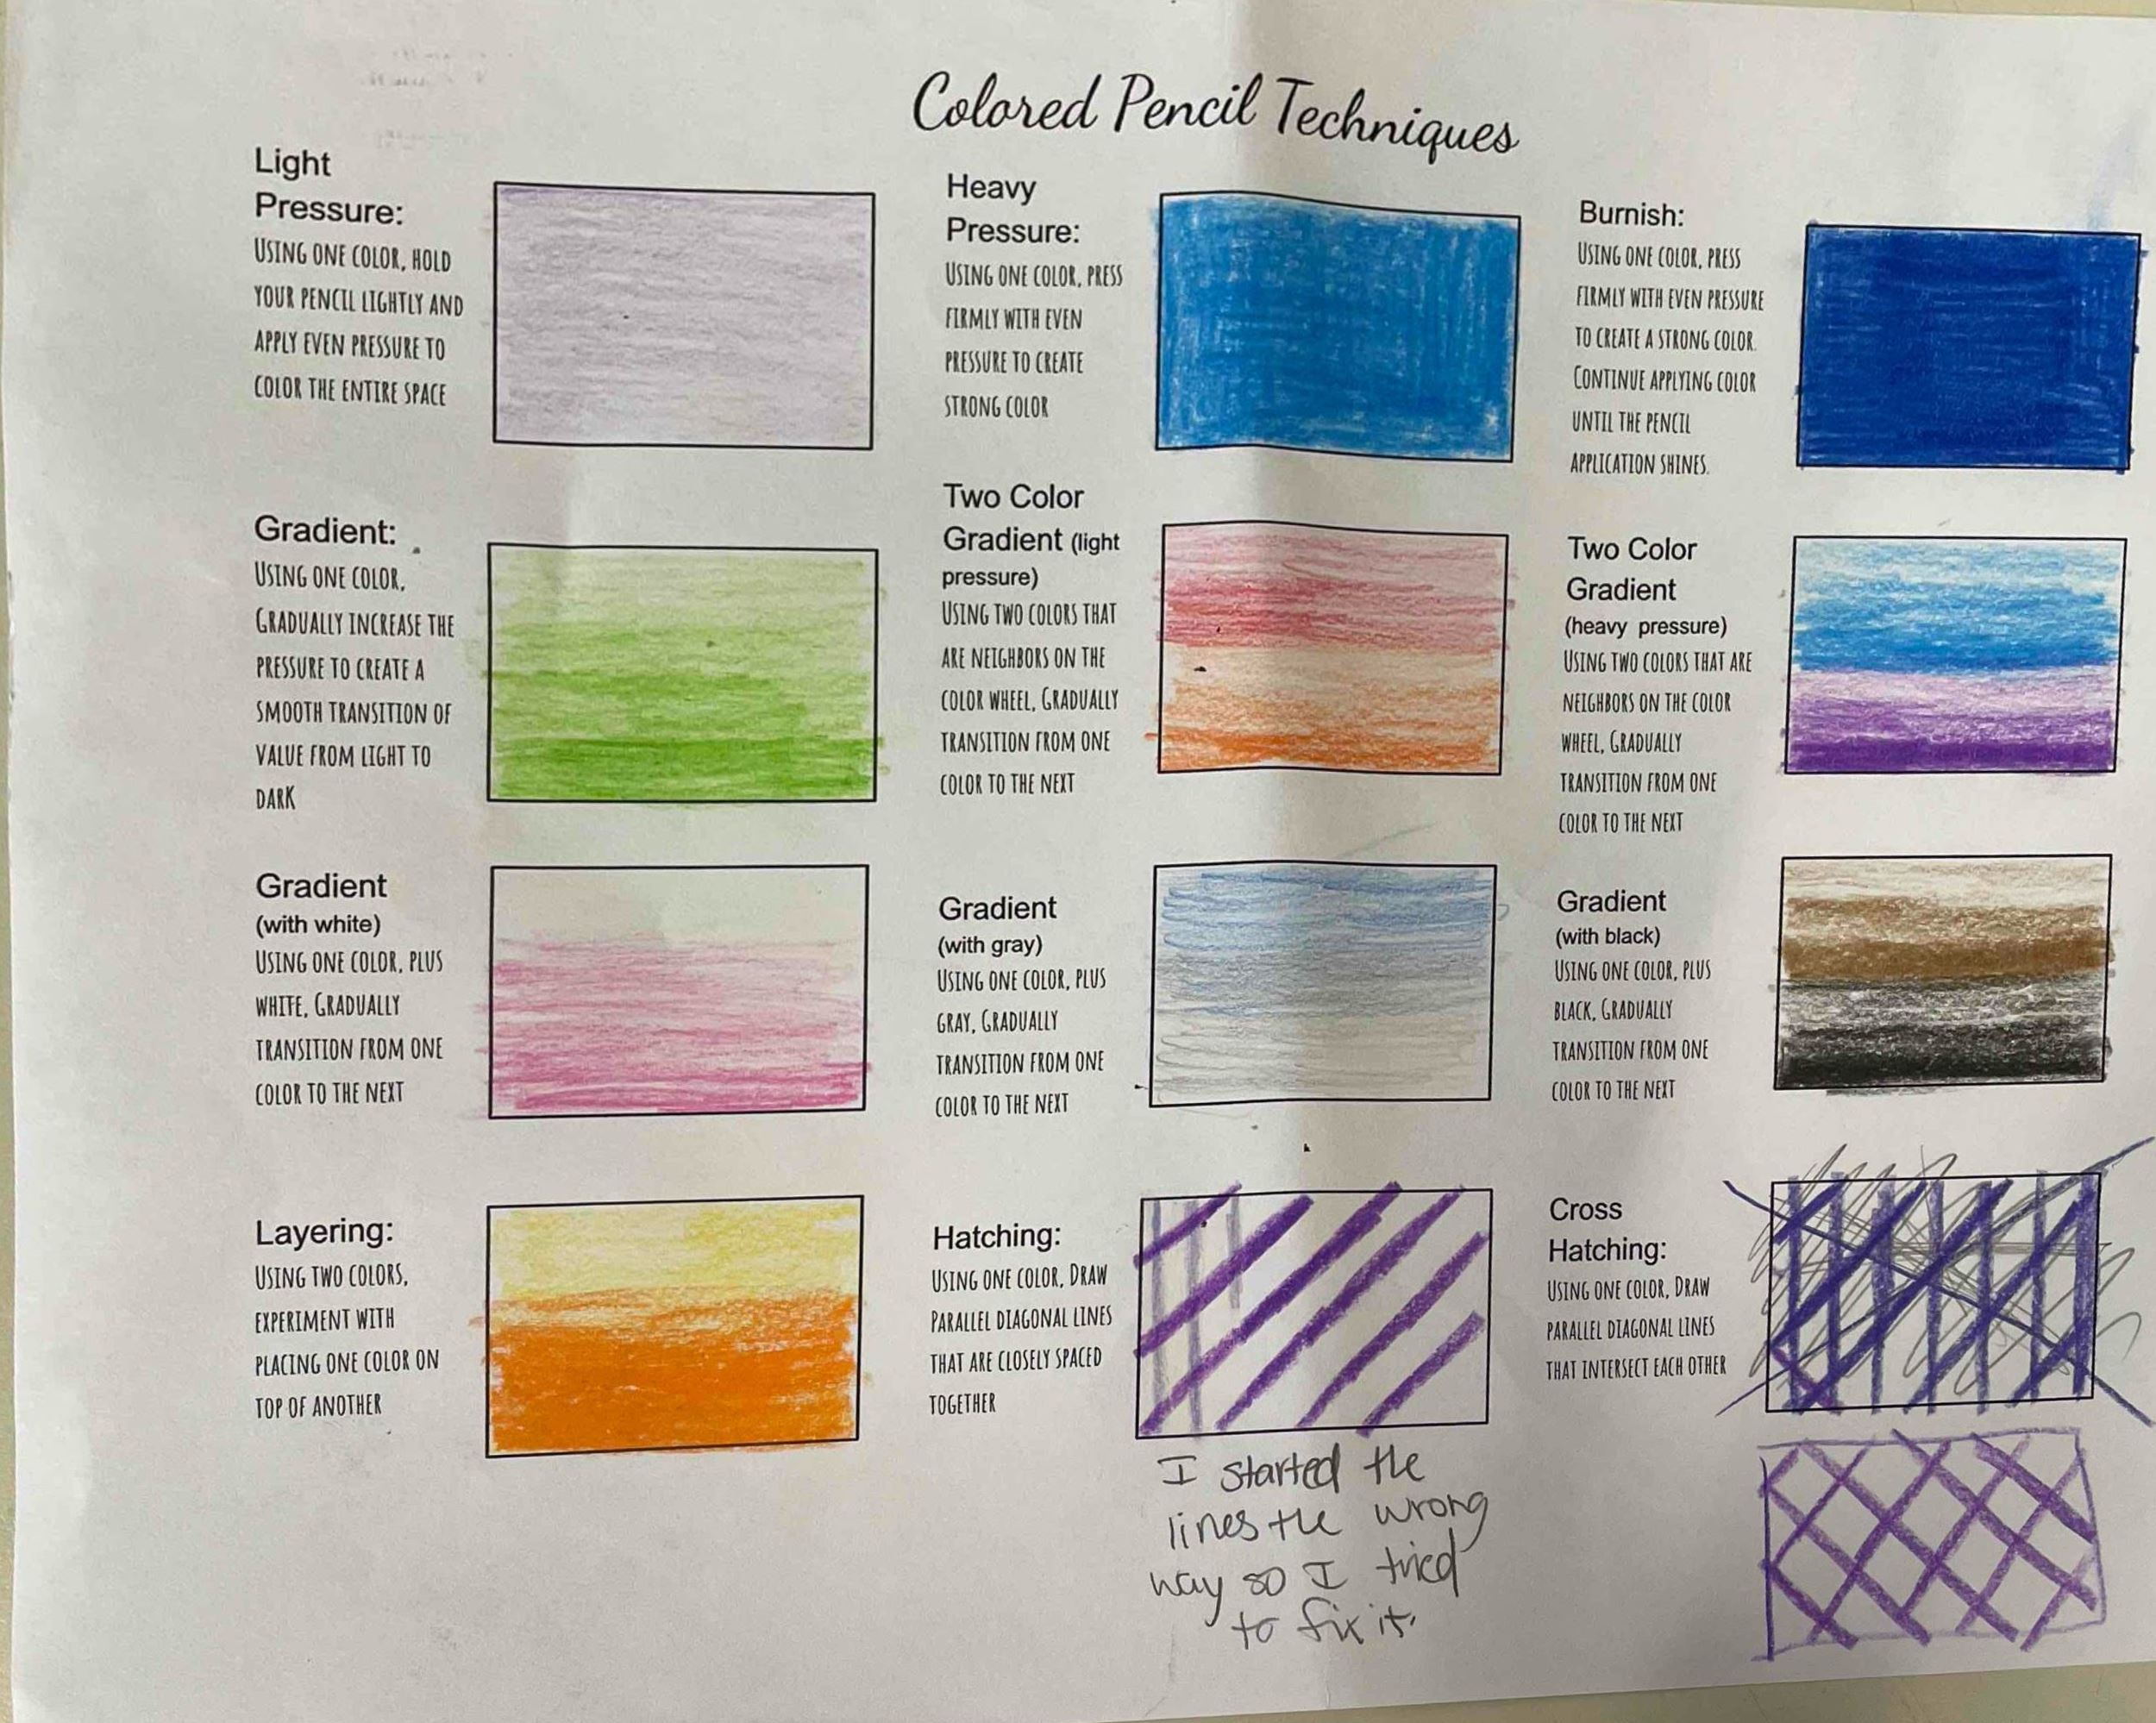 Colored Pencil Techniques
Light
Pressure:
USING ONE COLOR, HOLD
YOUR PENCIL LIGHTLY AND
APPLY EVEN PRESSURE TO
COLOR THE ENTIRE SPACE
Heavy
Pressure:
USING ONE COLOR, PRESS
FIRMLY WITH EVEN
PRESSURE TO CREATE
STRONG COLOR
Burnish:
USING ONE COLOR, PRESS
FIRMLY WITH EVEN PRESSURE
TO CREATE A STRONG COLOR.
CONTINUE APPLYING COLOR
UNTIL THE PENCIL
APPLICATION SHINES.
Gradient:
USING ONE COLOR,
GRADUALLY INCREASE THE
PRESSURE TO CREATE A
SMOOTH TRANSITION OF
VALUE FROM LIGHT TO
DARK
Two Color
Gradient (light
pressure)
USING TWO COLORS THAT
ARE NEIGHBORS ON THE
COLOR WHEEL, GRADUALLY
TRANSITION FROM ONE
COLOR TO THE NEXT
Two Color
Gradient
(heavy pressure)
USING TWO COLORS THAT ARE
NEIGHBORS ON THE COLOR
WHEEL, GRADUALLY
TRANSITION FROM ONE
COLOR TO THE NEXT
Gradient
(with white)
USING ONE COLOR, PLUS
WHITE, GRADUALLY
TRANSITION FROM ONE
COLOR TO THE NEXT
Gradient
(with gray)
USING ONE COLOR, PLUS
GRAY, GRADUALLY
TRANSITION FROM ONE
COLOR TO THE NEXT
Gradient
(with black)
USING ONE COLOR, PLUS
BLACK, GRADUALLY
TRANSITION FROM ONE
COLOR TO THE NEXT
Layering:
USING TWO COLORS,
EXPERIMENT WITH
PLACING ONE COLOR ON
TOP OF ANOTHER
Hatching:
USING ONE COLOR, DRAW
PARALLEL DIAGONAL LINES
THAT ARE CLOSELY SPACED
TOGETHER
I started the
lines the wrong
way so I tried
to fix it.
Cross
Hatching:
USING ONE COLOR, DRAW
PARALLEL DIAGONAL LINES
THAT INTERSECT EACH OTHER